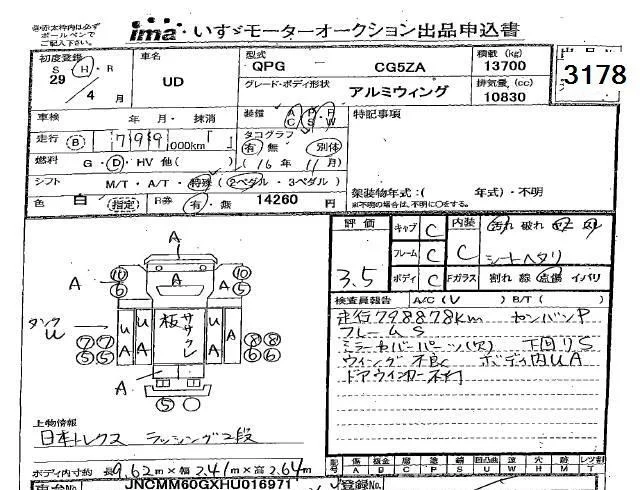 ※赤太枠内は必ず
ボールペンで
ご記入下さい。
ima いすゞモーターオークション出品申込書
初度登録 S・H・R 29 4月
車名 UD
型式 QPG - CG5ZA
積載(kg) 13700
グレード・ボディ形状 アルミウィング
排気量(cc) 10830
3178
車検 年・月・抹消
装備 A P P C S W
特記事項
走行 B 799,000km
タコグラフ 有・無 別体
燃料 G・D・HV 他( ) (16年11月)
シフト M/T・A/T・特殊(2ペダル・3ペダル)
架装物年式:( 年式)・不明
※不明の場合は、不明に○をする。
色 白 指定 R券 有・無 14260円
評価 3.5
キャブ C
フレーム C
ボディ C
内装 C
汚れ 破れ
シートヘタリ
Fガラス 割れ 線 点傷 イバリ
検査員報告 A/C(V ) B/T( )
走行798878km センバンP
フレームS
ミラーカバーパーツ(欠) 下回りS
ウィング不良 ボディ内UA
ドアウインカー不灯
A
A
A
⑩ ⑥
⑩ ⑥
タンク U
⑦⑦ ⑤⑤
U A
U A
板ササクレ
U A
⑧⑧ ⑥⑥
A
⑤
上物情報
日本トレクス ラッシング2段
ボディ内寸約 長9.62m×幅2.41m×高2.64m
記号 傷 凹 板金 腐 塗 錆 凹凸曲 涙 穴 跡 レツ割
A B C P S U W H M T
車台No. JNCMM60GXHU016971
登録No.